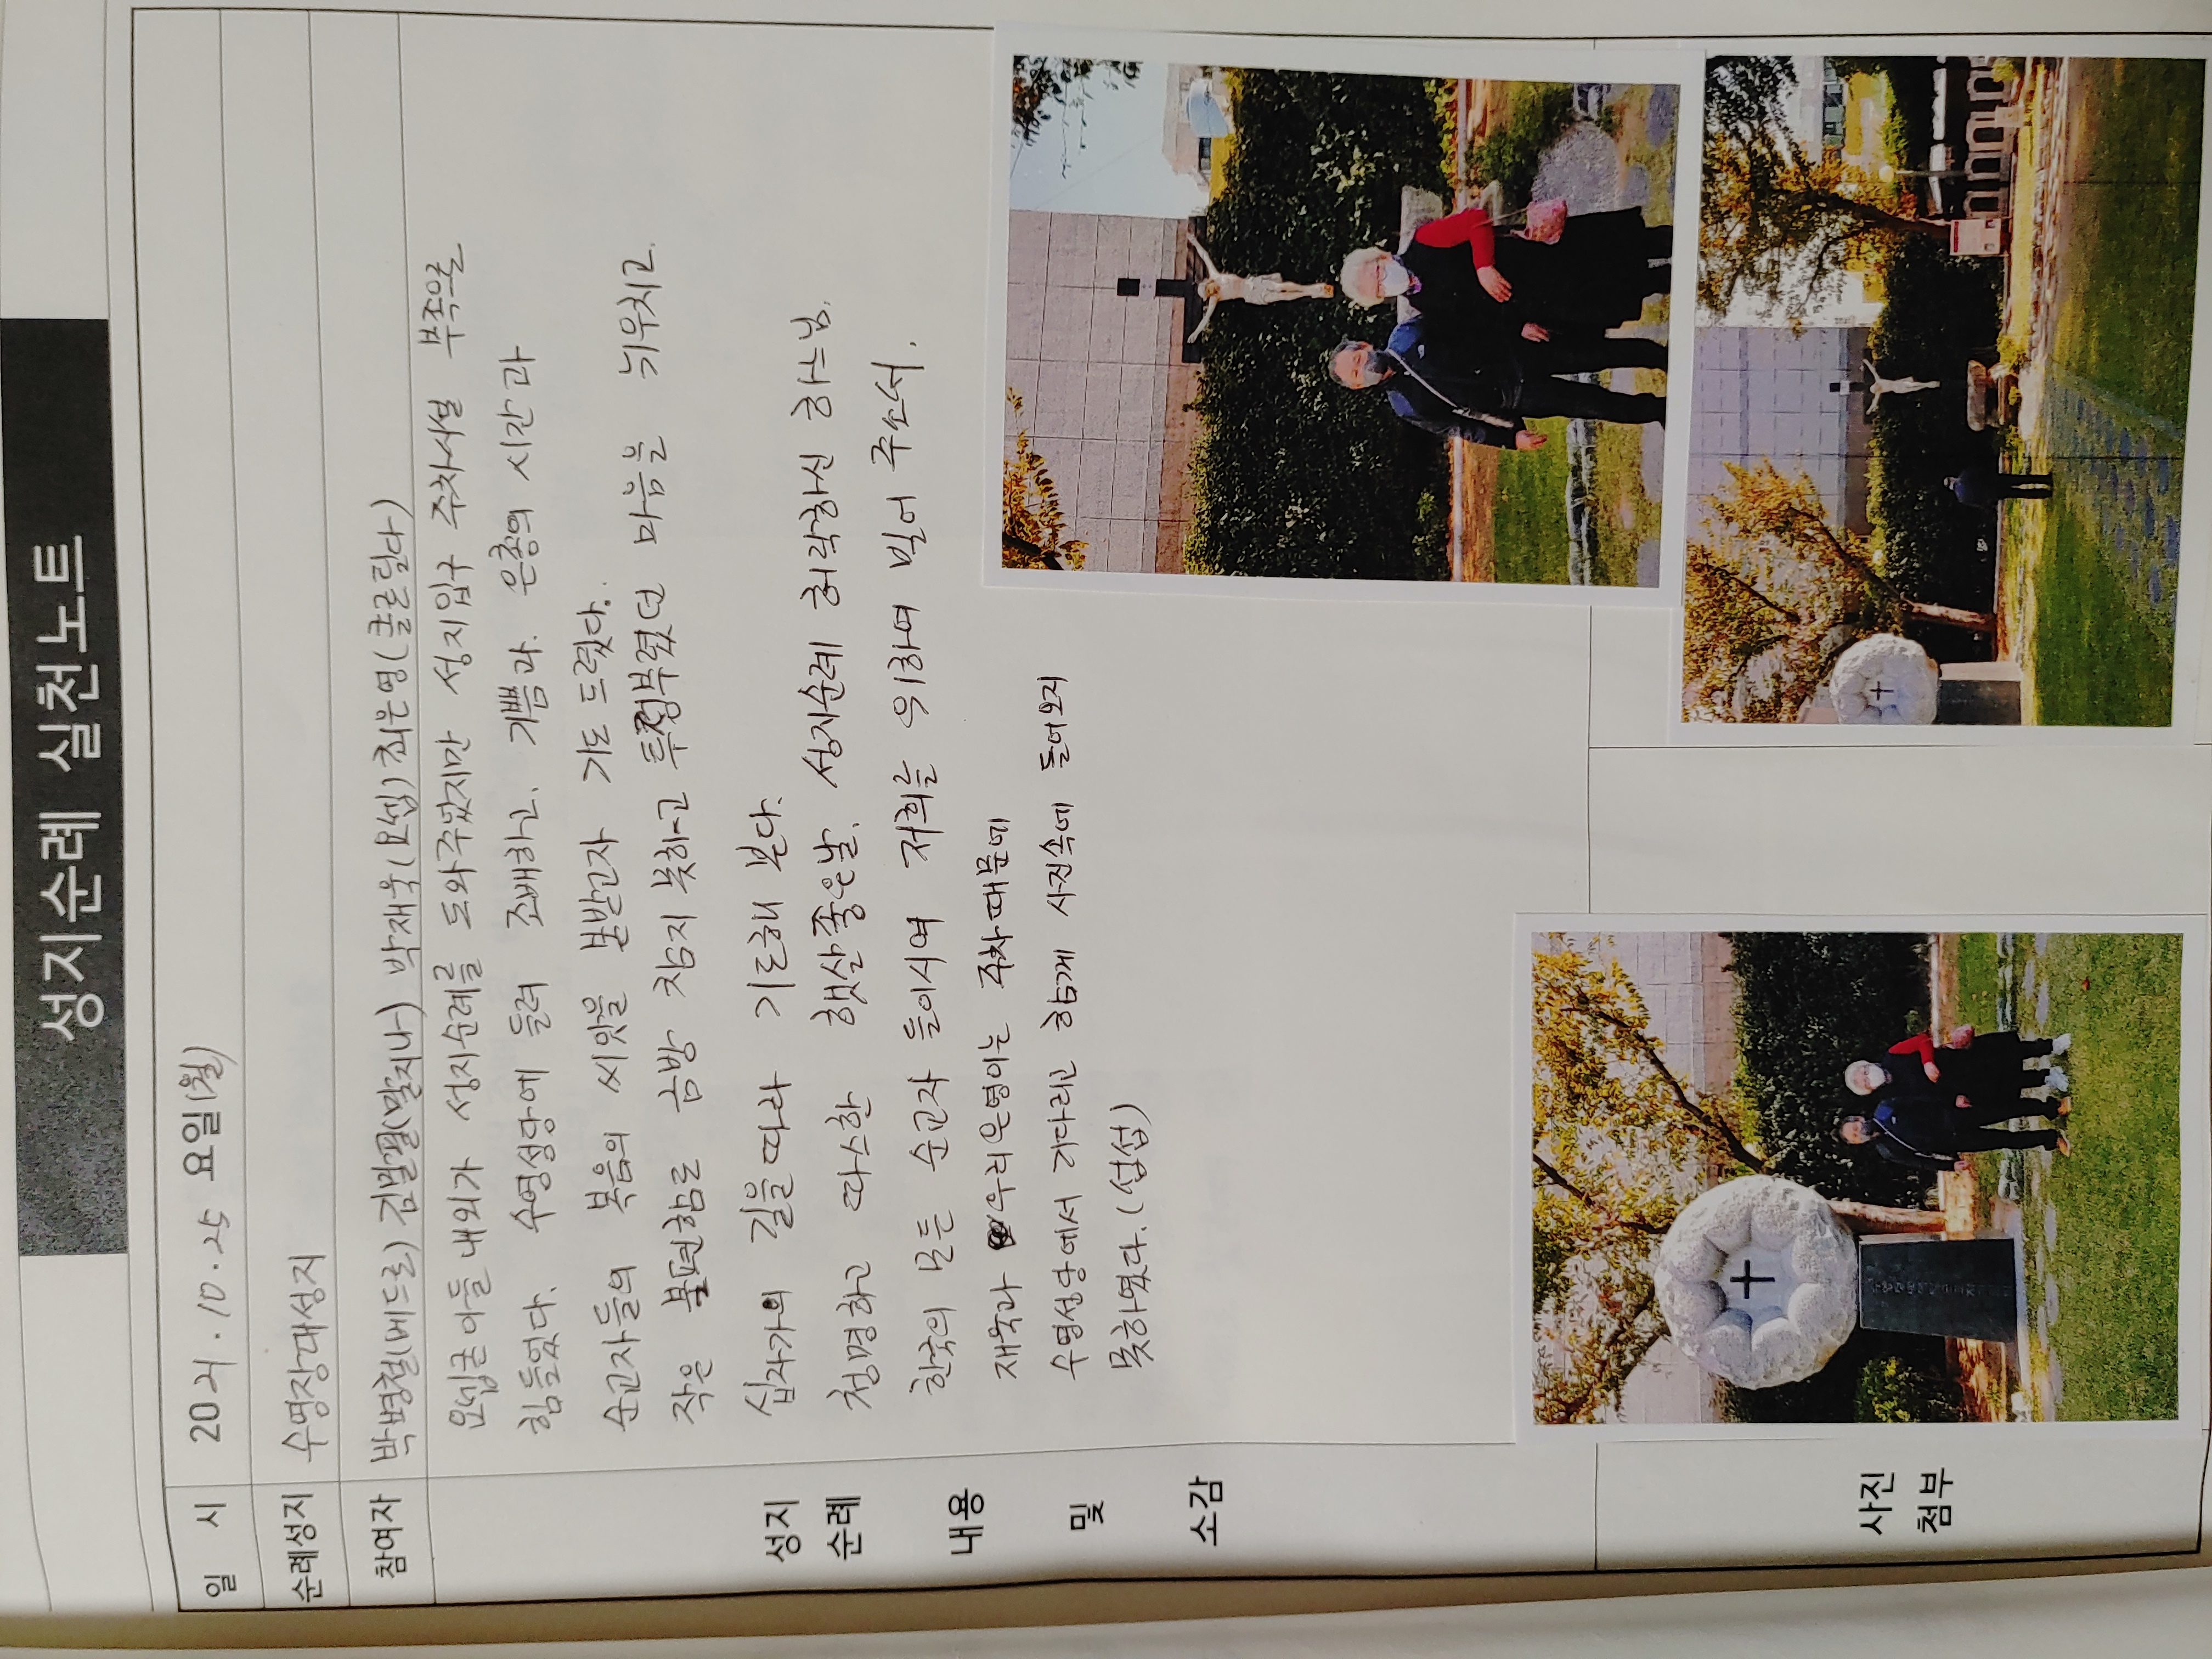 성지순례 실천노트
일 시 2021.10.25 요일(월)
순례성지 수영장대성지
참여자 박병철(베드로) 김말필(말지나) 박재욱(요셉) 최은영(클로틸다)
요셉큰아들 내외가 성지순례를 도와주었지만 성지입구 주차시설 부족으로
힘들었다. 수영성당에 들려 조배하고. 기쁨과. 은총의 시간과
순교자들의 복음의 씨앗을 본받고자 기도 드렸다.
작은 불편함도 금방 참지 못하고 투정부렸던 마음을 뉘우치고.
십자가의 길을 따라 기도해 본다.
청명하고 따스한 햇살좋은날. 성지순례 허락하신 하느님.
한국의 모든 순교자 들이시여 저희를 위하여 빌어 주소서.
재욱과 우리은영이는 주차때문에
수영성당에서 기다리고 함께 사진속에 들어오지
못하였다. (섭섭)
성지
순례
내용
및
소감
사진
첨부